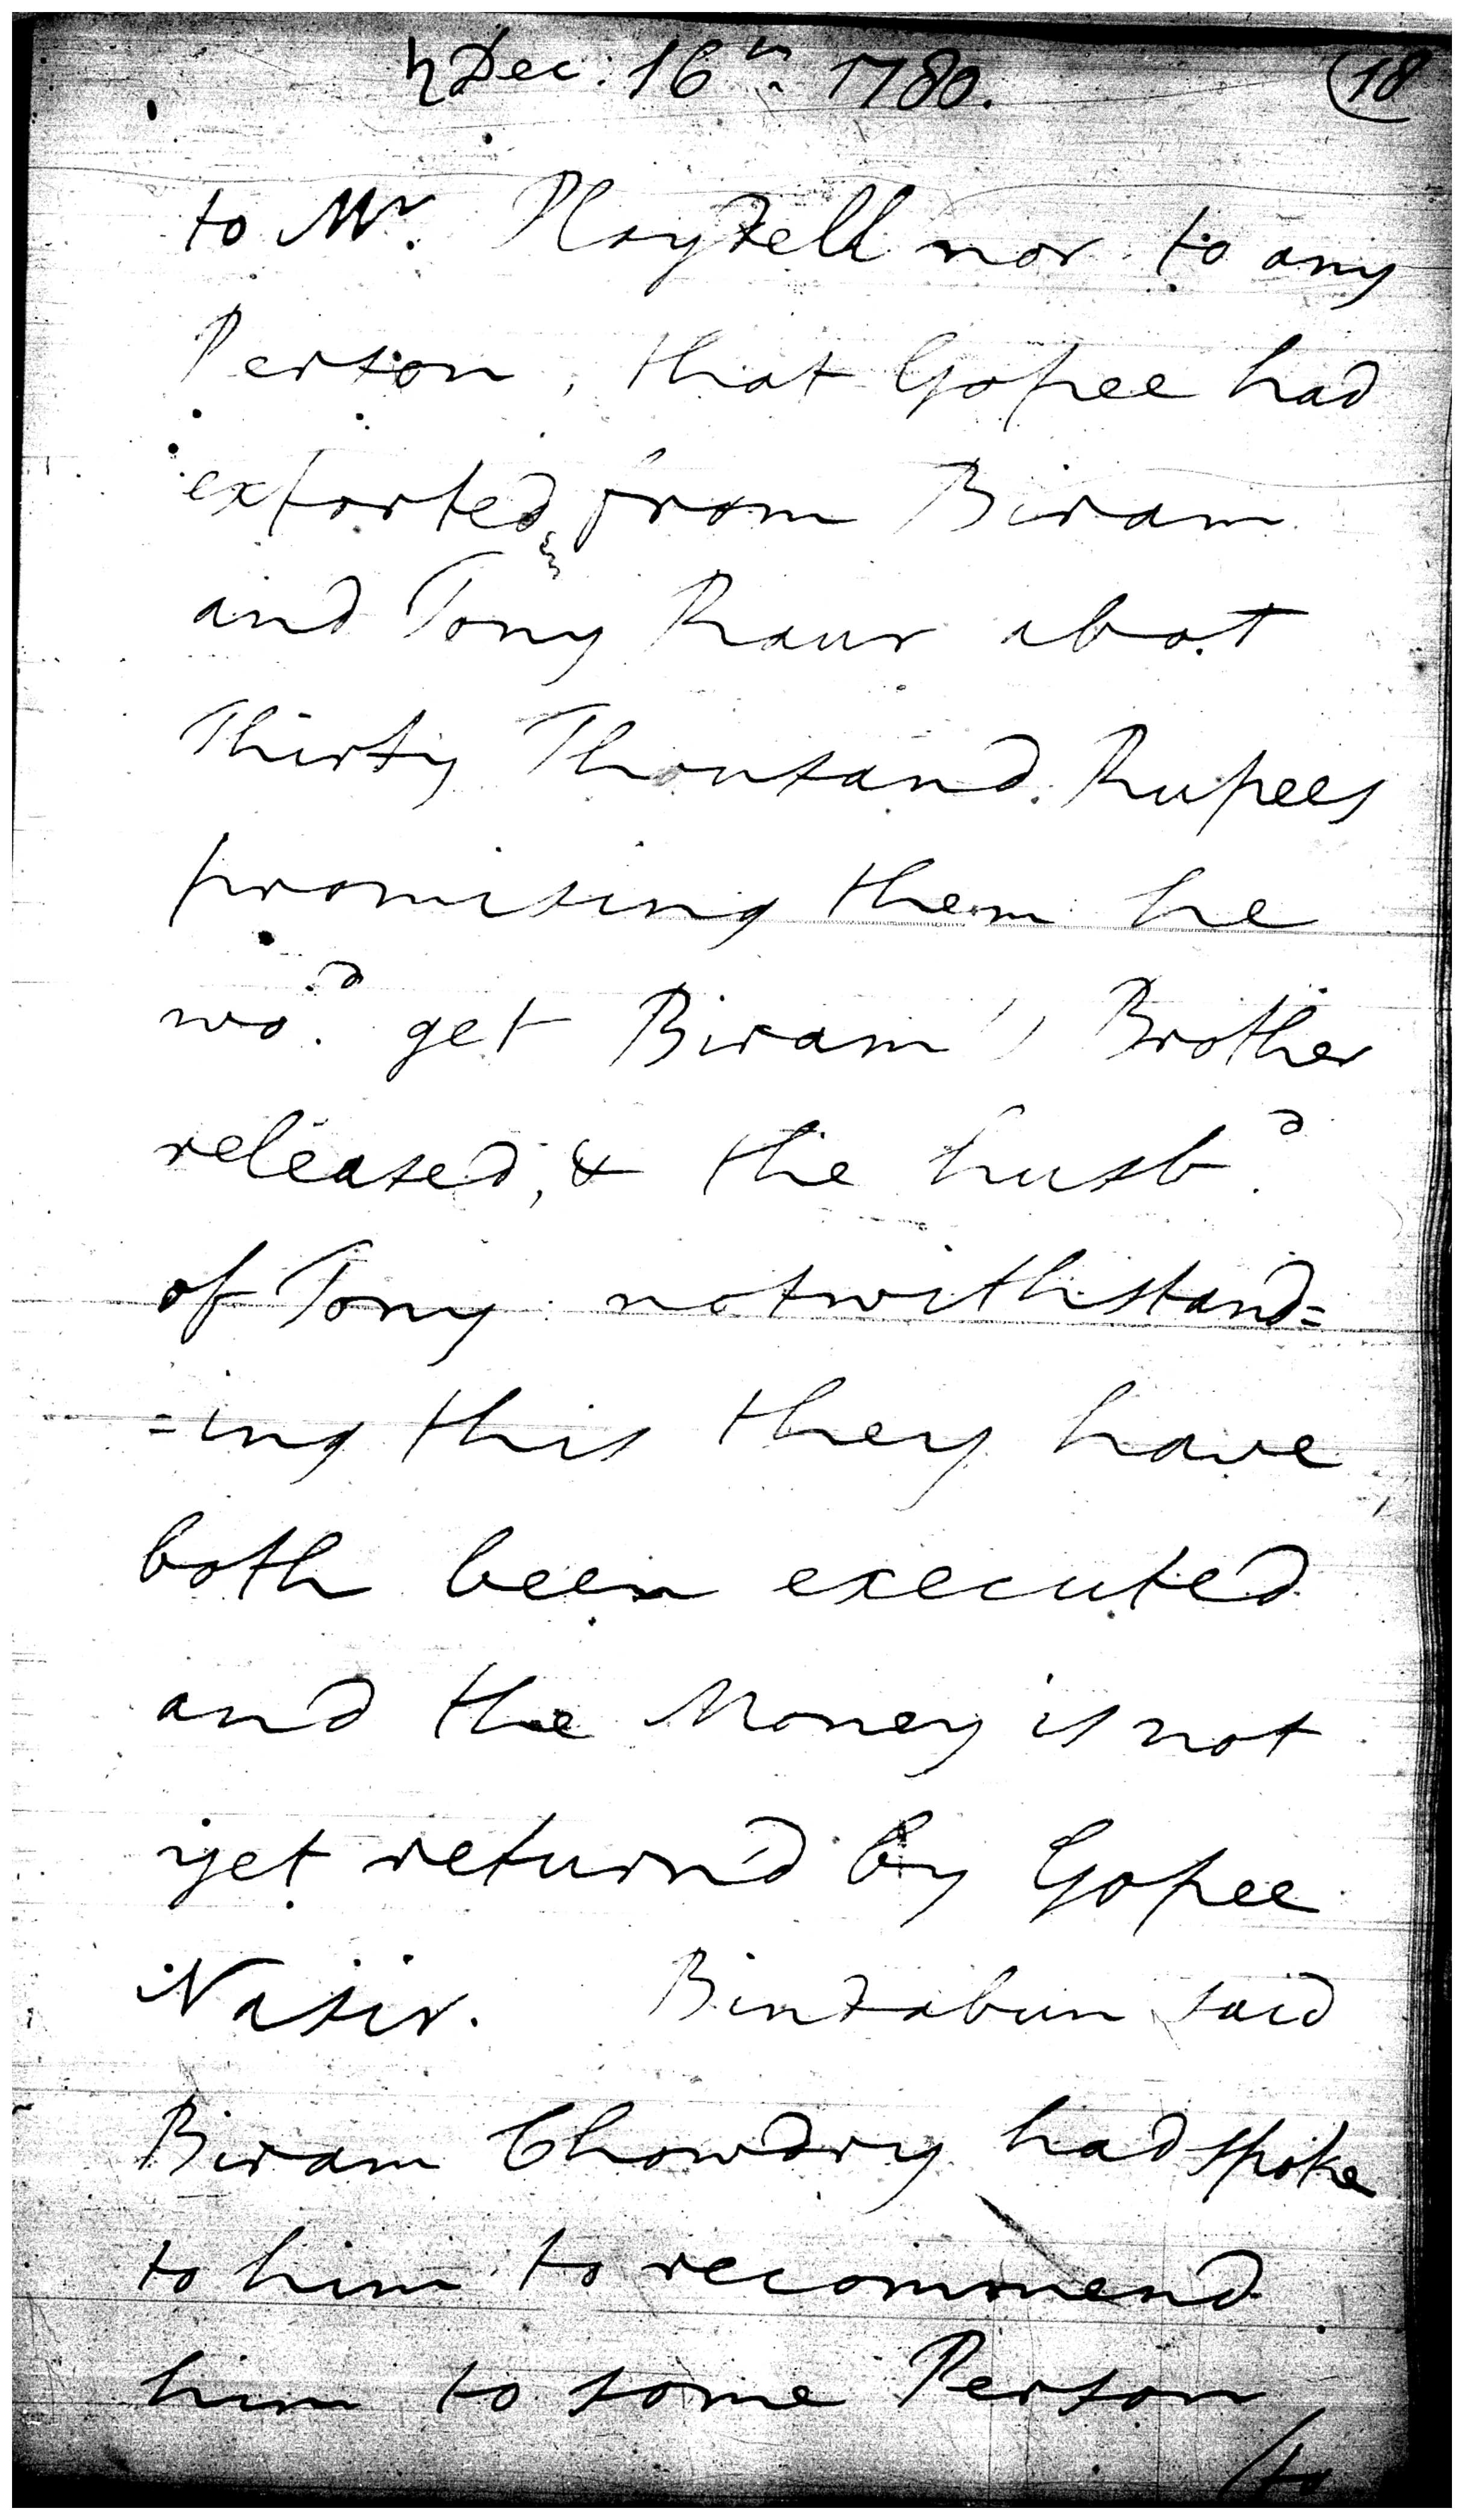 ♄ Dec: 16th. 1780. (18
to Mr. Playdell nor to any
Person, that Gopee had
extorted from Biram
and Tony Raur abot
Thirty Thousand Rupees
promising them he
wod. get Biram's Brother
released, & the husbd.
of Tony notwithstand=
=ing this they have
both been executed
and the Money is not
yet return'd by Gopee
Nasir. Bindabun said
Biram Chowdry had spoke
to him to recommend
him to some Person
/to